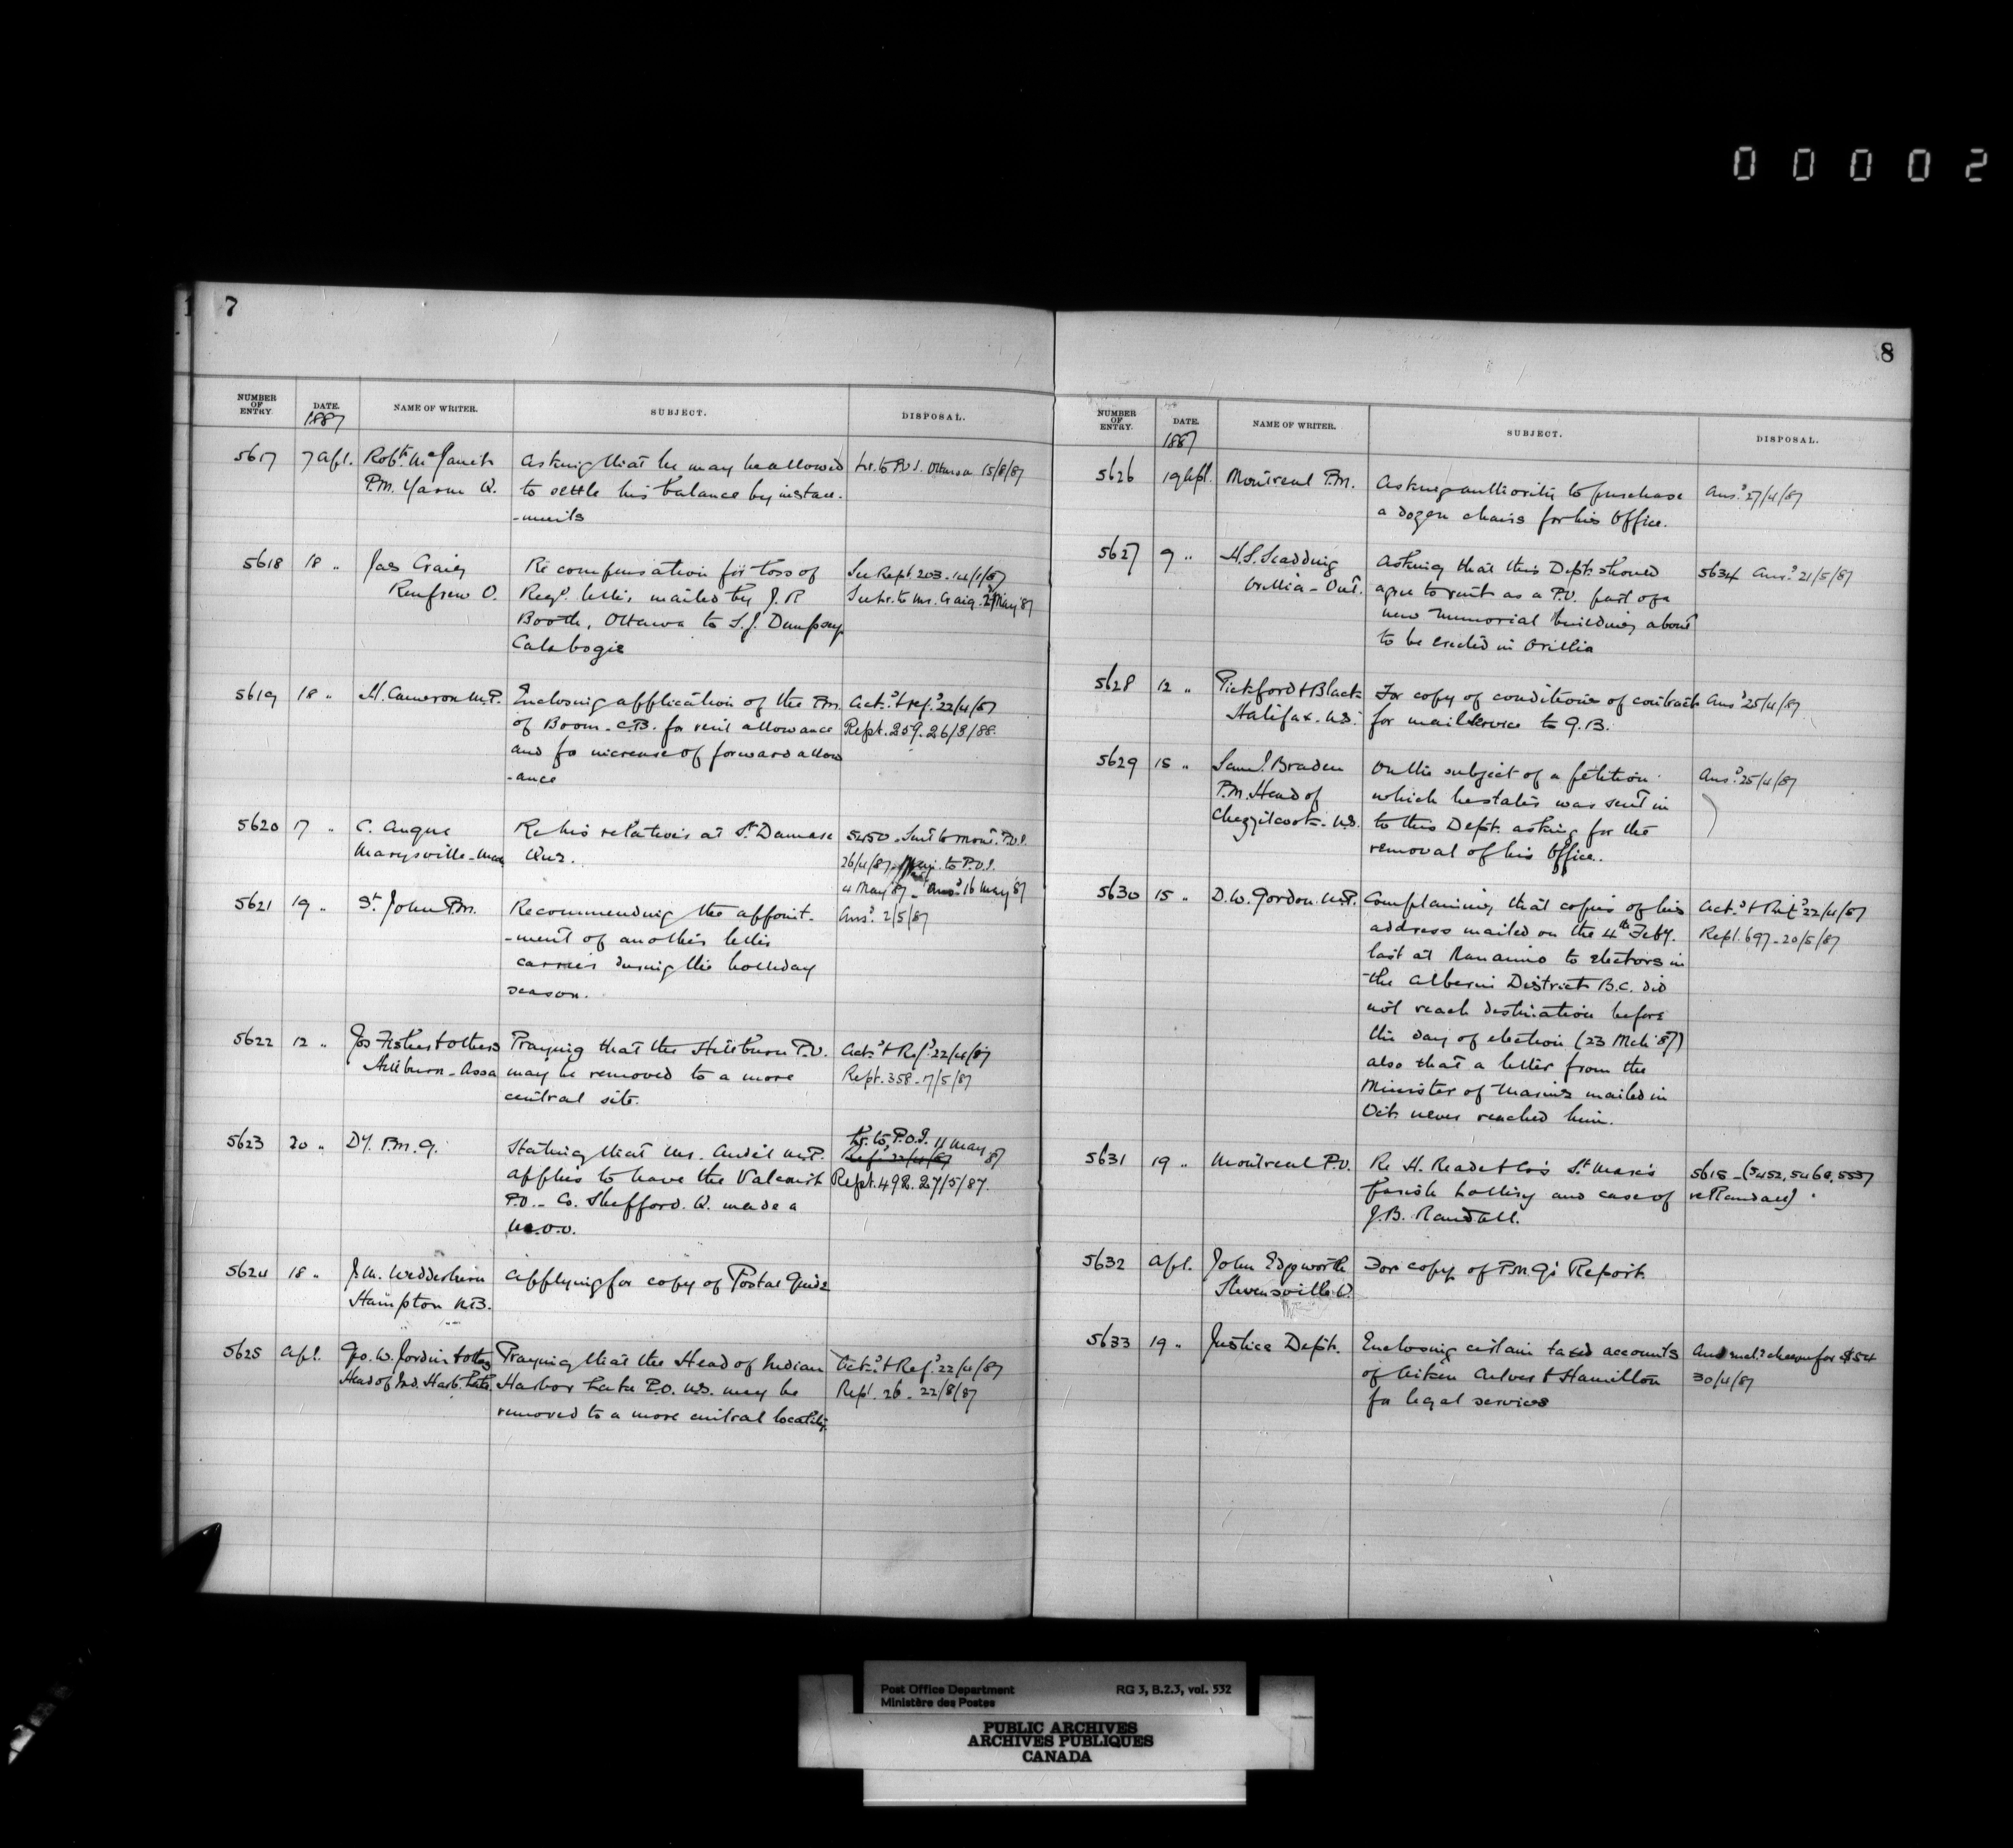 00002
7
NUMBER OF ENTRY.
DATE. 1887
NAME OF WRITER.
SUBJECT.
DISPOSAL.
5617 7 Apl. Robt. McJanet Asking that he may be allowed Lr. to P.O.I. Ottawa 15/8/87
P.M. Yarm Q. to settle his balance by instal-
-ments
5618 18 " Jas Craig Re compensation for loss of See Rept. 203. 14/1/87
Renfrew O. Regd. letter mailed by J. R See Lr. to Mr. Craig. May 87
Booth, Ottawa to S. J. Dempsey
Calabogie
5619 18 " H. Cameron M.P. Enclosing application of the P.M. Ackd. & ref. 22/4/87
of Boom. C.B. for rent allowance Rept. 259. 26/3/88.
and for increase of forward allow
-ance
5620 17 " C. Angus Re his relatives at St. Damase 5450. Sent to Mont. P.O.I.
Marysville Que. 26/4/87. to P.O.I.
4 May 87. Ansd. 16 May 87
5621 19 " St. John P.M. Recommending the appoint- Ansd. 2/5/87
-ment of another letter
carrier during the holliday
season.
5622 12 " Jos Fisher & others Praying that the Hillburn P.O. Ackd. & Refd. 22/4/87
Hillburn - Assa may be removed to a more Rept. 358. 7/5/87
central site.
5623 20 " Dy. P.M.G. Stating that Mr. Audet M.P. Lr. to P.O.I. 11 May 87
applies to have the Valcourt Refd. 22/4/87
P.O. - Co. Shefford. Q. made a Rept. 492. 27/5/87.
M.O.O.
5624 18 " J.M. Wedderburn Applying for copy of Postal Guide
Hampton N.B.
5625 Apl. Geo. W. Jordin & others Praying that the Head of Indian Ackd. & Ref. 22/4/87
Head of Ind. Harb. Lake Harbor Lake P.O. N.S. may be Rept. 26. 22/8/87
removed to a more central locality.
8
NUMBER OF ENTRY.
DATE. 1887
NAME OF WRITER.
SUBJECT.
DISPOSAL.
5626 19 Apl. Montreal P.M. Asking authority to purchase Ansd. 27/4/87
a dozen chairs for his Office.
5627 9 " H.S. Scadding Asking that this Dept. should 5634 Ansd. 21/5/87
Orillia - Ont. agree to rent as a P.O. part of a
new memorial building about
to be erected in Orillia
5628 12 " Pickford & Black For copy of conditions of contract Ansd 25/4/87
Halifax. N.S. for mail service to G.B.
5629 15 " Saml. Braden On the subject of a petition Ansd. 25/4/87
P.M. Head of which he states was sent in
Chezzetcook. N.S. to this Dept. asking for the
removal of his Office.
5630 15 " D.W. Gordon. M.P. Complaining that copies of his Ackd. & Refd. 22/4/87
address mailed on the 4th Feby. Rept. 697. 20/5/87
last at Nanaimo to electors in
the Alberni District B.C. did
not reach destination before
the day of election (23 Mch 87)
also that a letter from the
Minister of Marine mailed in
Oct. never reached him.
5631 19 " Montreal P.O. Re H. Reade & Co's St. Mark's 5615 - (5452, 5468, 5537
parish lottery and case of re Randall)
J.B. Randall.
5632 Apl. John Edgworth For copy of P.M.G's Report.
Stevensville O.
5633 19 " Justice Dept. Enclosing certain taxed accounts Ansd encl. cheque for $54
of Aitken Culver & Hamilton 30/4/87
for legal services
Post Office Department RG 3, B.2.3, vol. 532
Ministère des Postes
PUBLIC ARCHIVES
ARCHIVES PUBLIQUES
CANADA